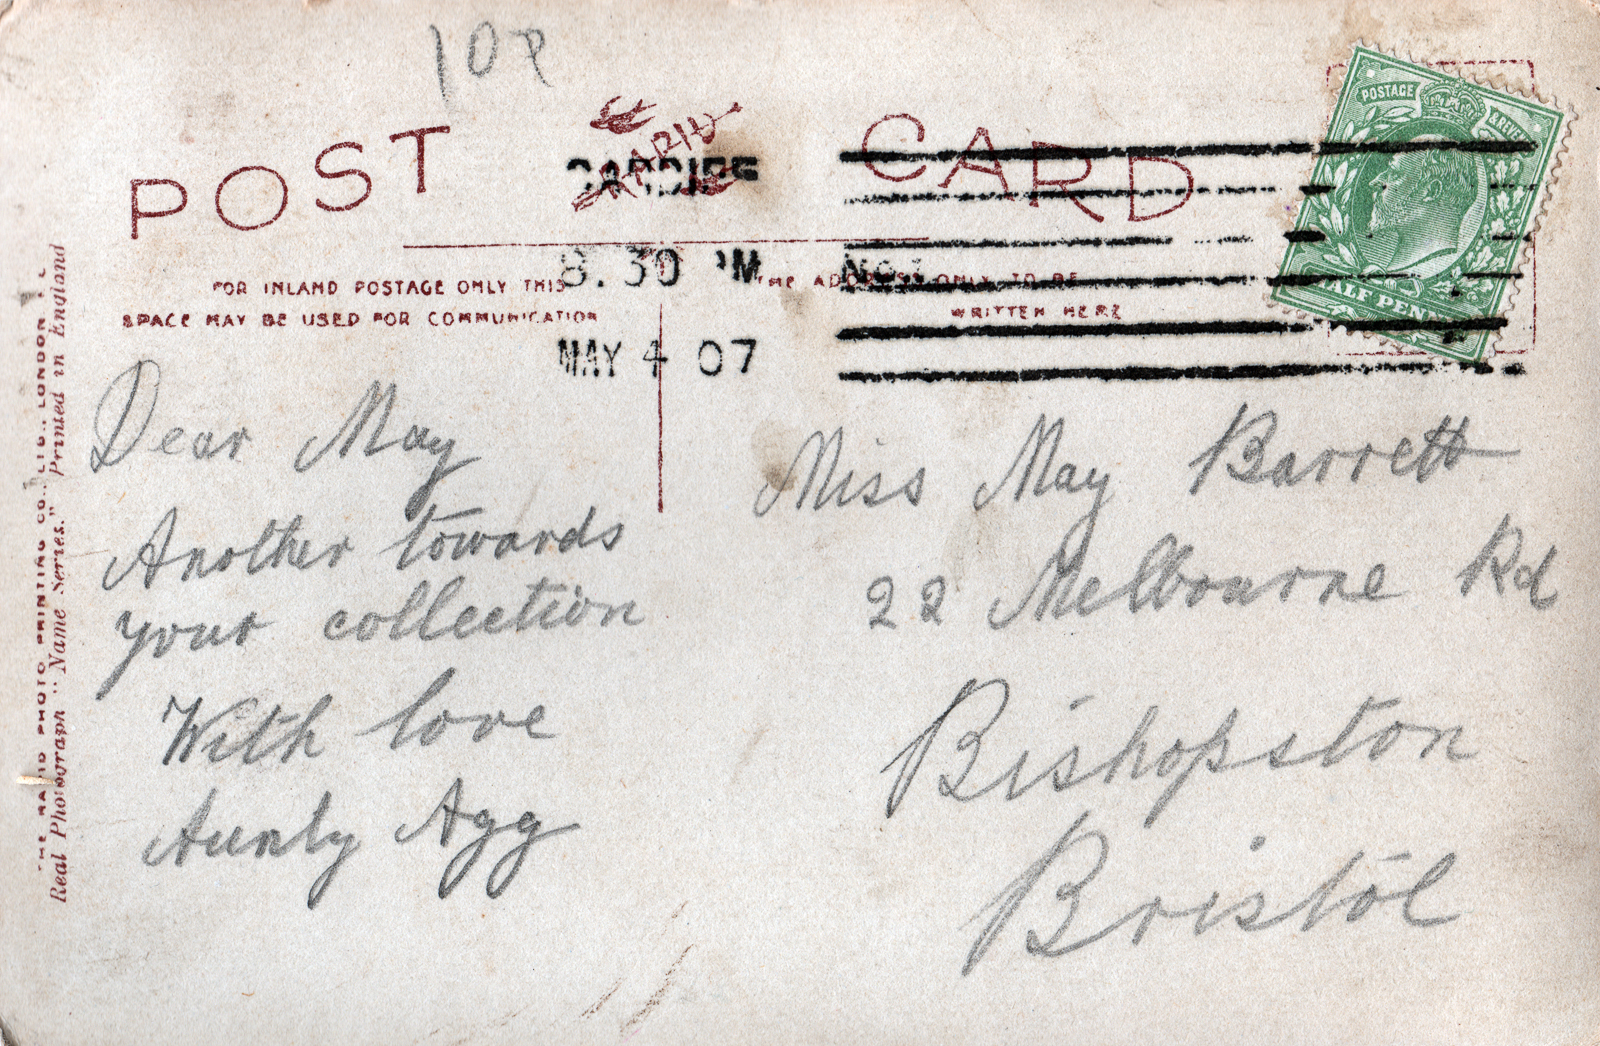 10p
POST CARD
RAPID
CARDIFF
8.30 PM
MAY 4 07
FOR INLAND POSTAGE ONLY THIS
SPACE MAY BE USED FOR COMMUNICATION
THE ADDRESS ONLY TO BE
WRITTEN HERE
POSTAGE & REVE
HALF PEN
Dear May
Another towards
your collection
With love
Aunty Agg
Miss May Barrett
22 Melbourne Rd
Bishopston
Bristol
THE RAPID PHOTO PRINTING CO., LTD., LONDON
Real Photograph "Name Series." Printed in England